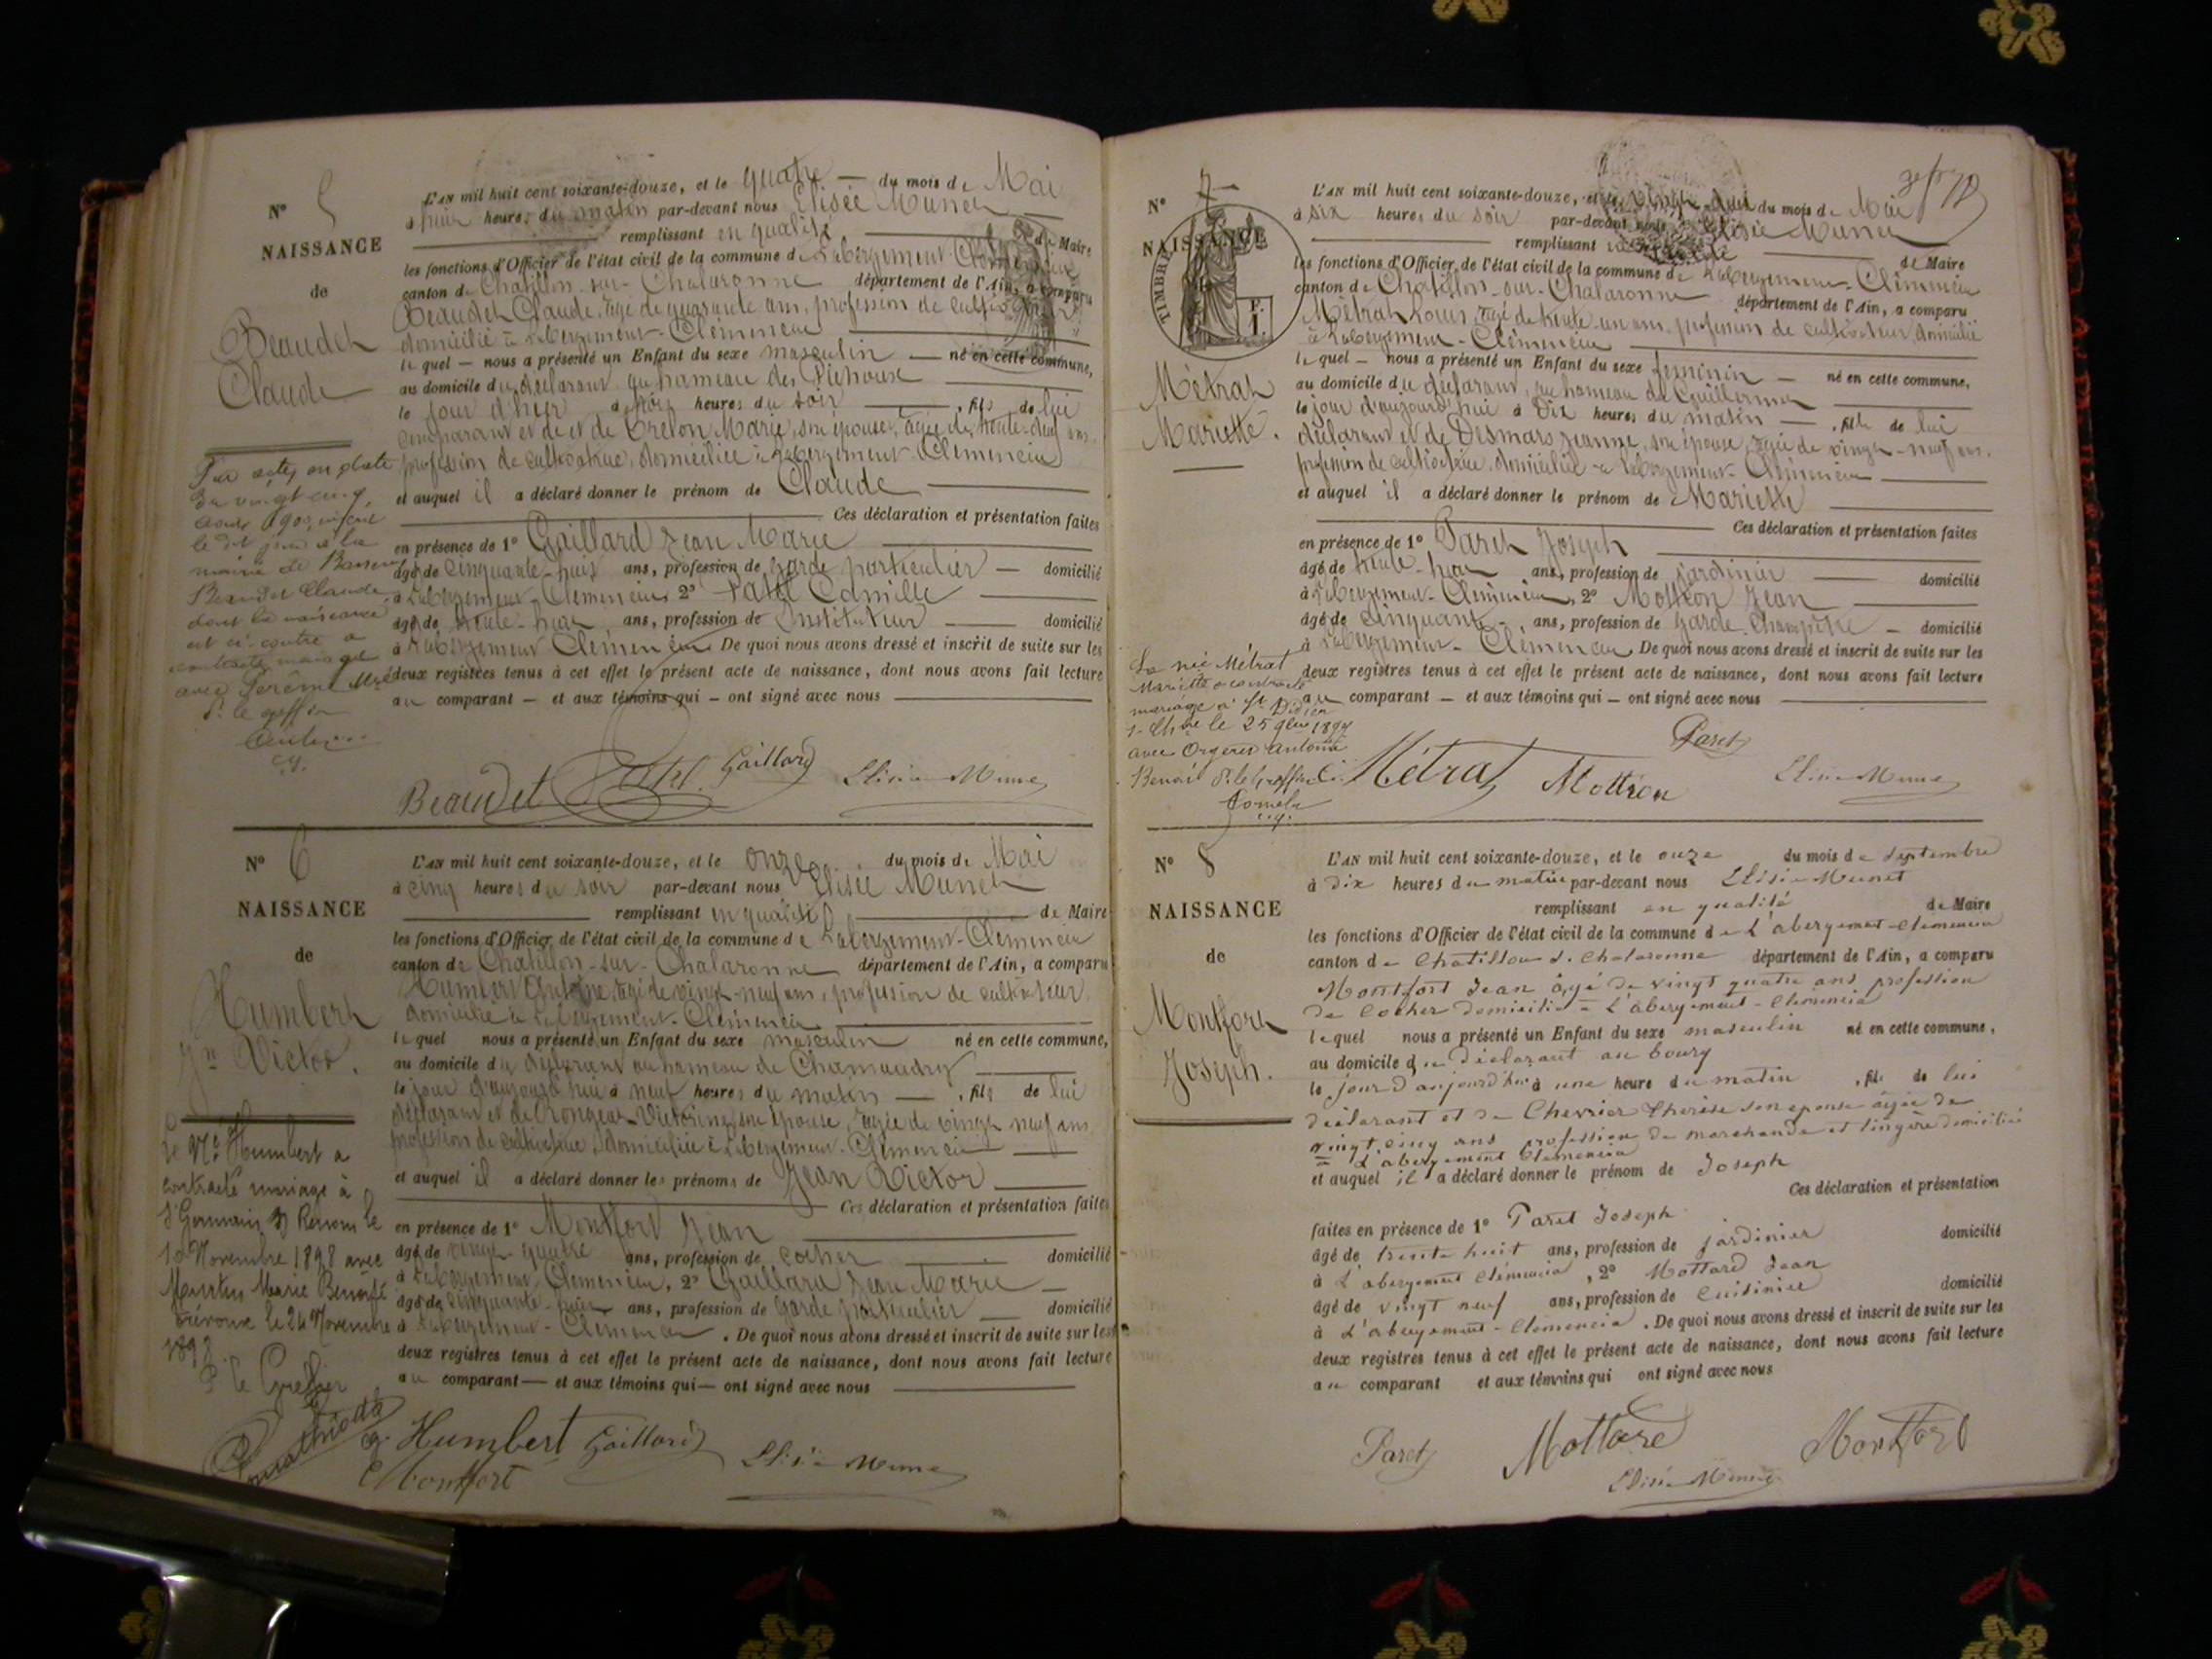 N° 5
NAISSANCE
de
Beaudet
Claude
L'AN mil huit cent soixante-douze, et le quatre — du mois de Mai
à huit heures du matin par-devant nous Elisée Munet
remplissant en qualité de Maire
les fonctions d'Officier de l'état civil de la commune de Labergement-Clémencia
canton de Chatillon-sur-Chalaronne département de l'Ain, a comparu
Beaudet Claude, âgé de quarante ans, profession de cultivateur
domicilié à Labergement-Clémencia
le quel — nous a présenté un Enfant du sexe masculin — né en cette commune,
au domicile du déclarant au hameau des
le jour d'hier à heures du soir , fils de lui
comparant et de et de Marie, son épouse, âgée de trente-deux ans,
profession de cultivatrice, domiciliée à Labergement-Clémencia
et auquel il a déclaré donner le prénom de Claude
Ces déclaration et présentation faites
en présence de 1° Gaillard Jean Marie
âgé de cinquante-huit ans, profession de garde particulier — domicilié
à Labergement-Clémencia, 2° Camille
âgé de trente- ans, profession de Instituteur domicilié
à Labergement Clémencia. De quoi nous avons dressé et inscrit de suite sur les
deux registres tenus à cet effet le présent acte de naissance, dont nous avons fait lecture
au comparant — et aux témoins qui — ont signé avec nous
Par acte en date
du vingt cinq
août 1900, inscrit
le dit jour à la
mairie de
Beaudet Claude
dont la naissance
est ci-contre a
contracté mariage
avec
P. le greffier
Beaudet Gaillard Elisée Munet
N° 6
NAISSANCE
de
Humbert
Jn Victor.
L'AN mil huit cent soixante-douze, et le onze du mois de Mai
à cinq heures du soir par-devant nous Elisée Munet
remplissant en qualité de Maire
les fonctions d'Officier de l'état civil de la commune de Labergement-Clémencia
canton de Chatillon-sur-Chalaronne département de l'Ain, a comparu
Humbert Antoine, âgé de vingt-neuf ans, profession de cultivateur,
domicilié à Labergement-Clémencia
le quel nous a présenté un Enfant du sexe masculin né en cette commune,
au domicile du déclarant au hameau de Chamaudry
le jour d'aujourd'hui à neuf heures du matin — , fils de lui
déclarant et de Victorine, son épouse, âgée de vingt neuf ans
profession de cultivatrice, domiciliée à Labergement-Clémencia
et auquel il a déclaré donner les prénoms de Jean Victor
Ces déclaration et présentation faites
en présence de 1° Montfort Jean
âgé de vingt-quatre ans, profession de cocher domicilié
à Labergement Clémencia, 2° Gaillard Jean Marie
âgé de cinquante-huit ans, profession de garde particulier — domicilié
à Labergement-Clémencia. De quoi nous avons dressé et inscrit de suite sur les
deux registres tenus à cet effet le présent acte de naissance, dont nous avons fait lecture
au comparant — et aux témoins qui — ont signé avec nous
Le Né Humbert a
contracté mariage à
St Germain s/ Renom le
Novembre 1898 avec
Marie Benoîte
Trévoux le 24 Novembre
1898
P. le Greffier
Humbert Gaillard Elisée Munet
Montfort
N° 7
NAISSANCE
TIMBRE
Métrat
Mariette.
L'AN mil huit cent soixante-douze, et le vingt-deux du mois de Mai
à six heures du soir par-devant nous Elisée Munet
remplissant en qualité de Maire
les fonctions d'Officier de l'état civil de la commune de Labergement-Clémencia
canton de Chatillon-sur-Chalaronne département de l'Ain, a comparu
Métrat Louis, âgé de trente un ans, profession de cultivateur, domicilié
à Labergement-Clémencia
le quel — nous a présenté un Enfant du sexe féminin — né en cette commune,
au domicile du déclarant, au hameau de
le jour d'aujourd'hui à dix heures du matin — , fille de lui
déclarant et de Desmars Jeanne, son épouse, âgée de vingt-neuf ans,
profession de cultivatrice, domiciliée à Labergement-Clémencia
et auquel il a déclaré donner le prénom de Mariette
Ces déclaration et présentation faites
en présence de 1° Paret Joseph
âgé de trente-huit ans, profession de jardinier domicilié
à Labergement-Clémencia, 2° Mottion Jean
âgé de cinquante ans, profession de garde-champêtre — domicilié
à Labergement-Clémencia De quoi nous avons dressé et inscrit de suite sur les
deux registres tenus à cet effet le présent acte de naissance, dont nous avons fait lecture
au comparant — et aux témoins qui — ont signé avec nous
La née Métrat
Mariette a contracté
mariage à St Didier
s. Ch. le 25 9bre
avec Antoine
Benoit P. le Greffier
Métrat Mottion Paret Elisée Munet
N° 8
NAISSANCE
de
Montfort
Joseph.
L'AN mil huit cent soixante-douze, et le onze du mois de septembre
à dix heures du matin par-devant nous Elisée Munet
remplissant en qualité de Maire
les fonctions d'Officier de l'état civil de la commune de L'abergement-Clémencia
canton de Chatillon s. Chalaronne département de l'Ain, a comparu
Montfort Jean âgé de vingt quatre ans profession
de cocher domicilié à L'abergement-Clémencia
lequel nous a présenté un Enfant du sexe masculin né en cette commune,
au domicile du déclarant au bourg
le jour d'aujourd'hui à une heure du matin , fils de lui
déclarant et de Chevrier Thérèse son épouse âgée de
vingt cinq ans profession de marchande et lingère domiciliée
à L'abergement Clémencia
et auquel il a déclaré donner le prénom de Joseph
Ces déclaration et présentation
faites en présence de 1° Paret Joseph
âgé de trente huit ans, profession de jardinier domicilié
à L'abergement Clémencia, 2° Mottard Jean
âgé de vingt neuf ans, profession de cuisinier domicilié
à L'abergement-Clémencia. De quoi nous avons dressé et inscrit de suite sur les
deux registres tenus à cet effet le présent acte de naissance, dont nous avons fait lecture
au comparant et aux témoins qui ont signé avec nous
Paret Mottard Montfort
Elisée Munet